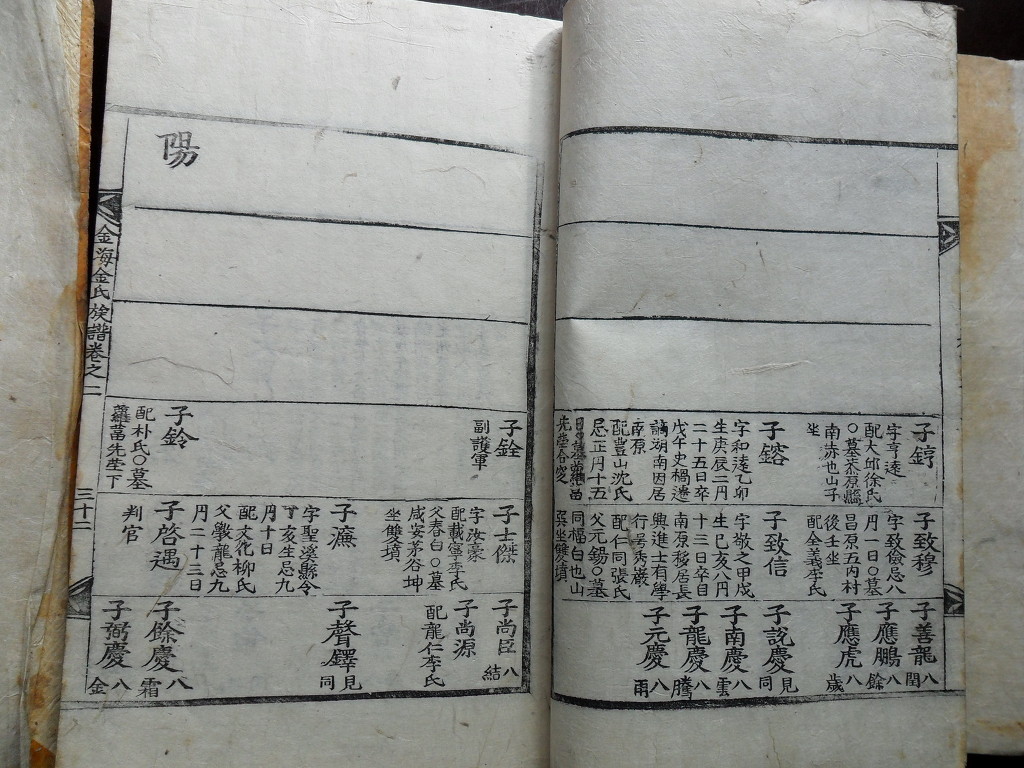 子錞
字亨遠
配大邱徐氏
○墓茶原縣
南赤也山子
坐
子鎔
字和遠乙卯
生庚辰二月
二十五日卒
戊午史禍遷
謫湖南因居
南原
配豊山沈氏
忌正月十五
子致穆
字致儉忌八
月一日○墓
昌原五內村
後壬坐
配全義李氏
子致信
字敬之甲戌
生己亥八月
十三日卒自
南原移居長
興進士有學
行居秀巖
配仁同張氏
父元錫○墓
同福白也山
艮坐雙墳
子善龍
八閏
子應鵬
八餘
子應虎
八歲
子說慶
見同
子南慶
八雲
子龍慶
八騰
子元慶
八雨
陽
子銓
副護軍
子鈴
配朴氏○墓
蘿葍先塋下
子士傑
字汝豪
配載寧李氏
父春白○墓
咸安茅谷坤
坐雙墳
子濂
字聖溪縣令
丁亥生忌九
月十日
配文化柳氏
父擊龍忌九
月二十三日
子啓遇
判官
子尚臣
八結
子尚源
配龍仁李氏
子聲鐸
見同
子餘慶
八霜
子弼慶
八金
金海金氏族譜卷之二
三十二